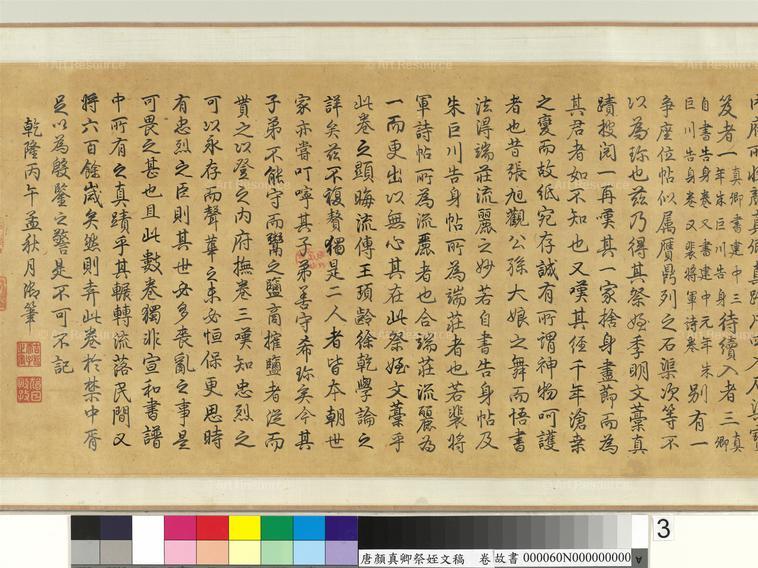 內府所收顏真卿真蹟凡四入石渠寶
笈者一真卿書建中三年朱巨川告身待續入者三真卿
自書告身卷又書建中元年朱巨川告身卷又裴將軍詩卷別有一
爭座位帖似属贗鼎列之石渠次等不
以為珎也兹乃得其祭姪季明文藁真
蹟披閱一再嘆其一家捨身盡莭而為
其君者如不知也又嘆其徑千年滄桒
之變而故紙宛存誠有所謂神物呵護
者也昔張旭觀公孫大娘之舞而悟書
法淂端莊流麗之妙若自書告身帖及
朱巨川告身帖所為端莊者也若裴將
軍詩帖所為流麗者也合端莊流麗為
一而更出以無心其在此祭姪文藁乎
此卷之顯晦流傳王頊齡徐乾學論之
詳矣兹不復贅獨是二人者皆本朝世
家亦嘗叮嚀其子弟善守希珎矣今其
子弟不能守而鬻之鹽商搉鹽者從而
貰之以登之內府撫卷三嘆知忠烈之
可以永存而聲華之未必恒保更思時
有忠烈之臣則其世必多喪亂之事是
可畏之甚也且此數卷獨非宣和書譜
中所有之真蹟乎其輾轉流落民間又
將六百餘嵗矣然則弆此卷於禁中胥
足以為殷鑒之警是不可不記
乾隆丙午孟秋月御筆
3
唐顏真卿祭姪文稿 卷 故書 000060N000000000
Art Resource